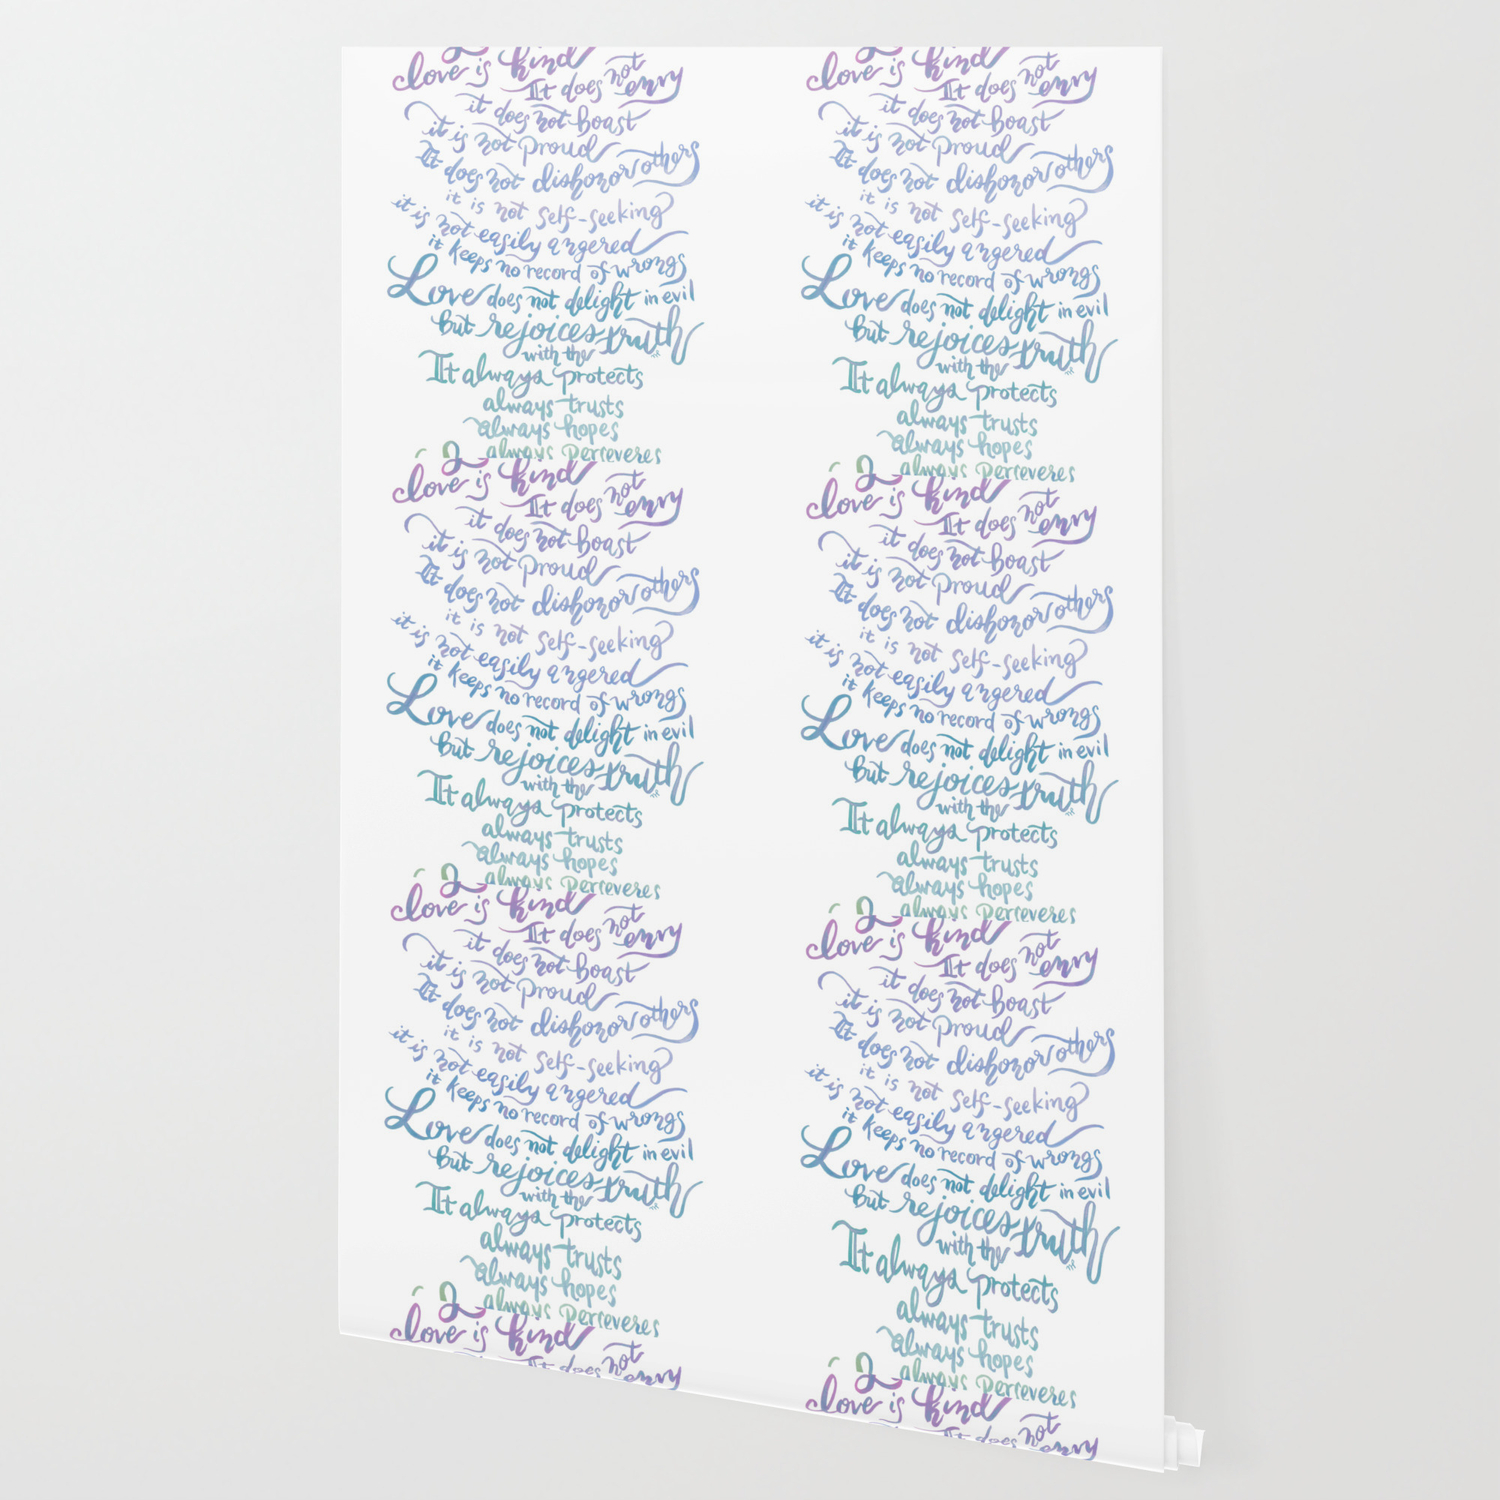 love is kind
It does not envy
it does not boast
it is not proud
It does not dishonor others
it is not self-seeking
it is not easily angered
it keeps no record of wrongs
Love does not delight in evil
but rejoices with the truth
It always protects
always trusts
always hopes
always perseveres
love is kind
It does not envy
it does not boast
it is not proud
It does not dishonor others
it is not self-seeking
it is not easily angered
it keeps no record of wrongs
Love does not delight in evil
but rejoices with the truth
It always protects
always trusts
always hopes
always perseveres
love is kind
It does not envy
it does not boast
it is not proud
It does not dishonor others
it is not self-seeking
it is not easily angered
it keeps no record of wrongs
Love does not delight in evil
but rejoices with the truth
It always protects
always trusts
always hopes
always perseveres
love is kind
It does not envy
love is kind
It does not envy
it does not boast
it is not proud
It does not dishonor others
it is not self-seeking
it is not easily angered
it keeps no record of wrongs
Love does not delight in evil
but rejoices with the truth
It always protects
always trusts
always hopes
always perseveres
love is kind
It does not envy
it does not boast
it is not proud
It does not dishonor others
it is not self-seeking
it is not easily angered
it keeps no record of wrongs
Love does not delight in evil
but rejoices with the truth
It always protects
always trusts
always hopes
always perseveres
love is kind
It does not envy
it does not boast
it is not proud
It does not dishonor others
it is not self-seeking
it is not easily angered
it keeps no record of wrongs
Love does not delight in evil
but rejoices with the truth
It always protects
always trusts
always hopes
always perseveres
love is kind
It does not envy